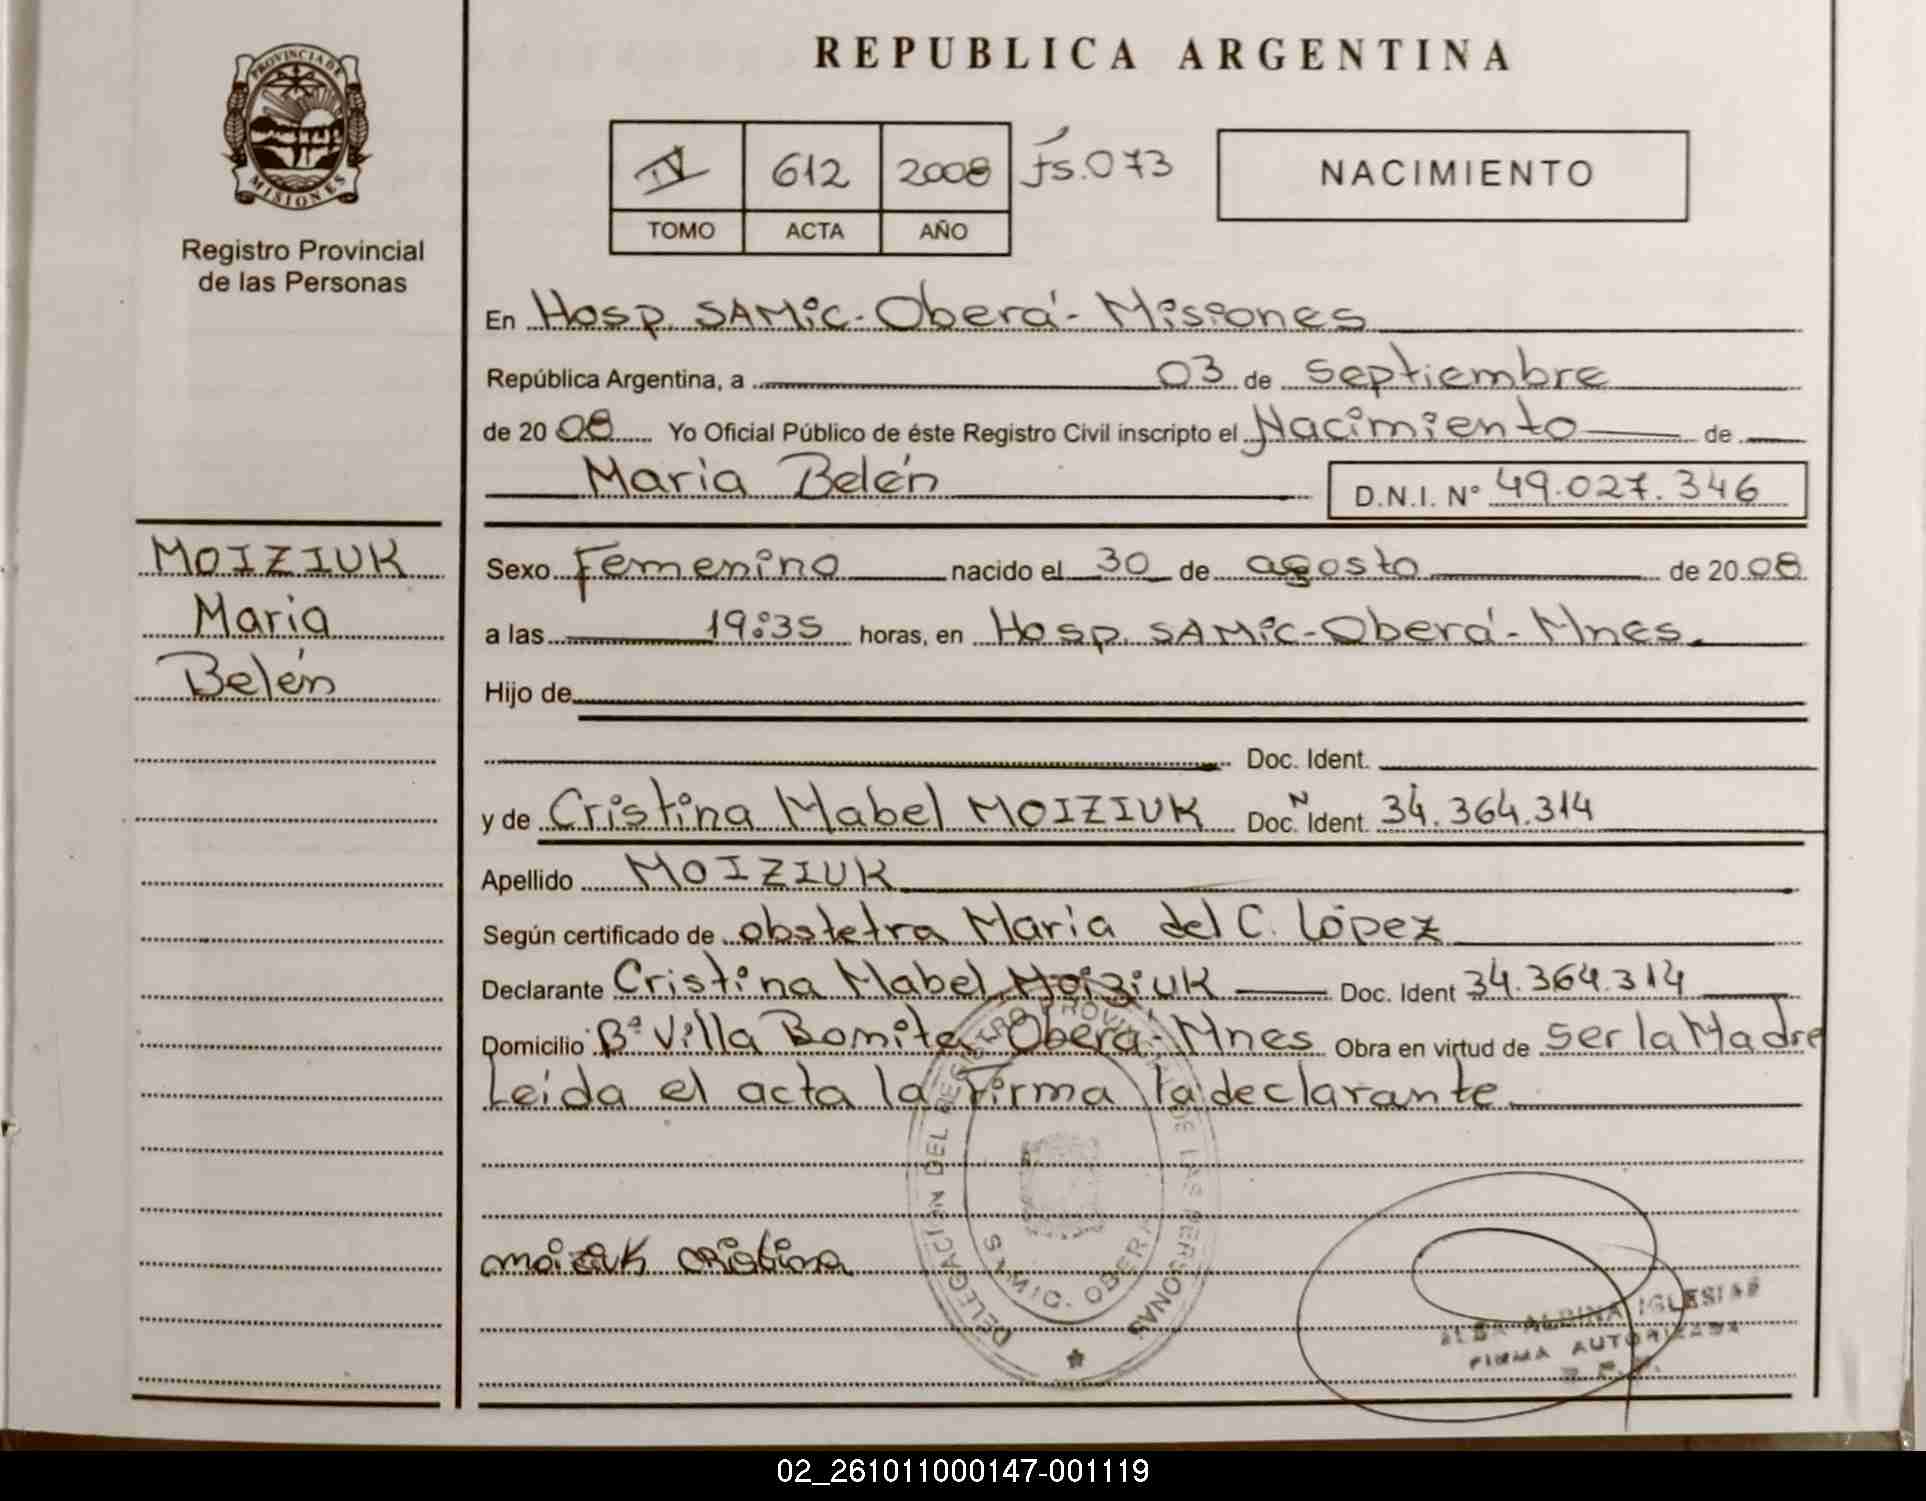 REPUBLICA ARGENTINA
PROVINCIA DE MISIONES
Registro Provincial
de las Personas
IV 612 2008 fs.073
TOMO ACTA AÑO
NACIMIENTO
En Hosp. SAMiC-Oberá-Misiones
República Argentina, a 03 de septiembre
de 2008 Yo Oficial Público de éste Registro Civil inscripto el Nacimiento de
María Belén D.N.I. Nº 49.027.346
MOIZIUK
María
Belén
Sexo Femenino nacido el 30 de agosto de 2008
a las 19:35 horas, en Hosp. SAMiC-Oberá-Mnes.
Hijo de
Doc. Ident.
y de Cristina Mabel MOIZIUK Doc. N Ident. 34.364.314
Apellido MOIZIUK
Según certificado de obstetra María del C. López
Declarante Cristina Mabel Moiziuk Doc. Ident 34.364.314
Domicilio Bº Villa Bonita Oberá-Mnes Obra en virtud de ser la Madre
Leída el acta la firma la declarante.
DELEGACION DEL REGISTRO PROVINCIAL DE LAS PERSONAS
OBERA
moiziuk cristina
ALBA ALBINA IGLESIAS
FIRMA AUTORIZADA
02_261011000147-001119